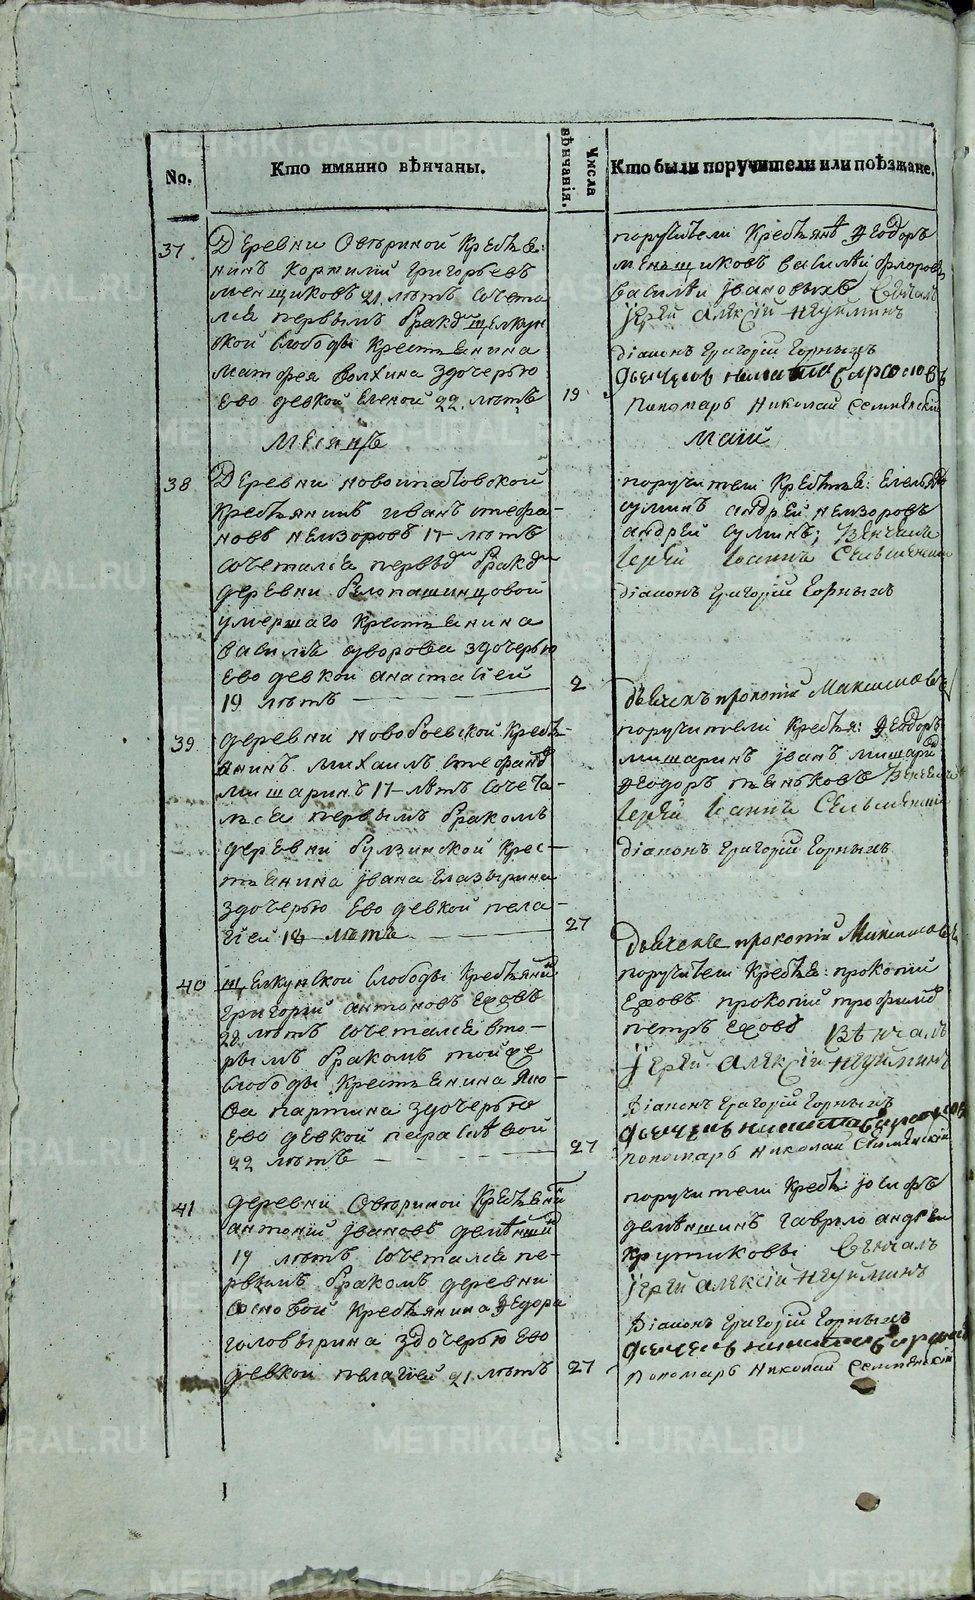 No.
Кто имянно вѣнчаны.
Числа вѣнчанія.
Кто были поручители или поѣзжане.
37.
Деревни Овѣриной Крестья:
нинъ Корнилий Григорьевъ
Менщиковъ 21. лѣтъ сочета
лся первымъ бракомъ Щелкун
ской слободы крестьянина
Матфея Волхина здочерью
ево девкой Еленой 22. лѣтъ
19
поручители Крестьянѣ Феодоръ
Менъщиковъ Василѣи Флоровъ
Василѣи Ивановыхъ Венчалъ
Іерей Алексій Неуйминъ
Діаконъ Григорій Горныхъ
Пономарь Николай Селменскій
Месяцъ
маій
38
Деревни Новоипатовской
крестьянинъ Иванъ Стефа-
новъ Немзоровъ 17 лѣтъ
сочетался первымъ бракомъ
деревни Белопашинцовой
умершаго крестьянина
Василья Суворова здочерью
Ево девкой Анастасией
19 лѣтъ
2
поручители Крестья:
Сулинъ Андрей Немзоровъ
Андрей Сулинъ; Вѣнчалъ
Іерей Іоаннъ Селменский
Діаконъ Григорій Горныхъ
Дьячекъ Прокопій Максимовъ
39
деревни Новобоевской Кресть-
янинъ Михаилъ Стефановъ
Мишаринъ 17 лѣтъ сочета-
лся первымъ бракомъ
деревни Булзинской Крес-
тьянина Ивана Глазырина
здочерью Ево девкой Пела-
гией 18 лѣтъ
27
поручители Крестья: Феодоръ
Мишаринъ Іванъ Мишаринъ
Феодоръ Паньковъ Вѣнчалъ
Іерей Іоаннъ Селменский
Діаконъ Григорій Горныхъ
Дьячекъ Прокопій Максимовъ
40
Щелкунской Слободы Крестьянинъ
Григорий Антоновъ Ежовъ
лѣтъ сочетался вто-
рымъ бракомъ тойже
слободы Крестьянина Яко-
ва Партина здочерью
Ево девкой Парасковой
22 лѣтъ
27
поручители Крестья: Прокопий
Ежовъ Прокопий Трофимовъ
Петръ Ежовъ Вѣнчалъ
Іерей Алексій Неуйминъ
Діаконъ Григорій Горныхъ
Пономарь Николай Селменскій
41
деревни Овѣриной Крестьянинъ
Антоний Івановъ
19 лѣтъ сочетался пе-
рвымъ бракомъ деревни
Сосновой Крестьянина Федора
Головырина здочерью Ево
девкой Пелагией 21 лѣтъ
27
поручители Кресть: Іосифъ
Гаврило Андреи
Крутиковы Венчалъ
Іерей Алексій Неуйминъ
Діаконъ Григорій Горныхъ
Пономарь Николай Селменскій
METRIKI.GASO-URAL.RU